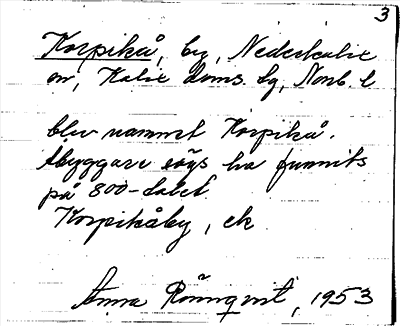 3
Korpikå, by, Nederkalix
sn, Kalix doms. by, Norrb. l
blev namnet Korpikå.
Åbyggare säys ha funnits
på 800-talet.
Korpikåby, ek
Anna Rönnqvist, 1953